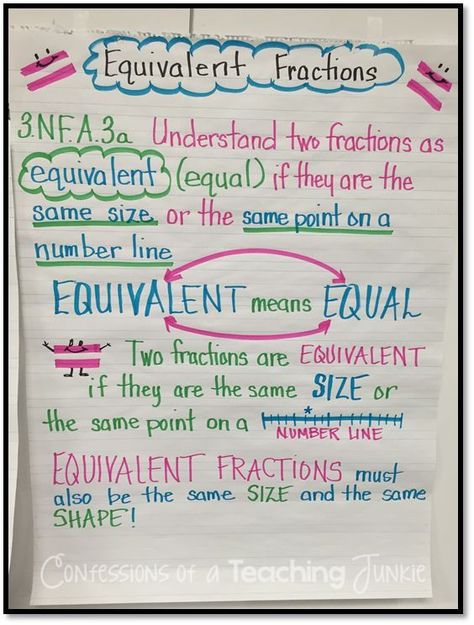 Equivalent Fractions
3.NF.A.3a Understand two fractions as
equivalent (equal) if they are the
same size or the same point on a
number line
EQUIVALENT means EQUAL
Two fractions are EQUIVALENT
if they are the same SIZE or
the same point on a
NUMBER LINE
EQUIVALENT FRACTIONS must
also be the same SIZE and the same
SHAPE!
CONFESSIONS OF A TEACHING JUNKIE